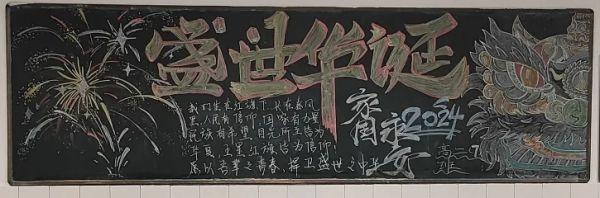 盛世华诞
我们生在红旗下,长在春风
里,人民有信仰,国家有力量
民族有希望,目光所至皆为
华夏,五星红旗皆为信仰!
愿以吾辈之青春,捍卫盛世之中华
2024
高二7
班